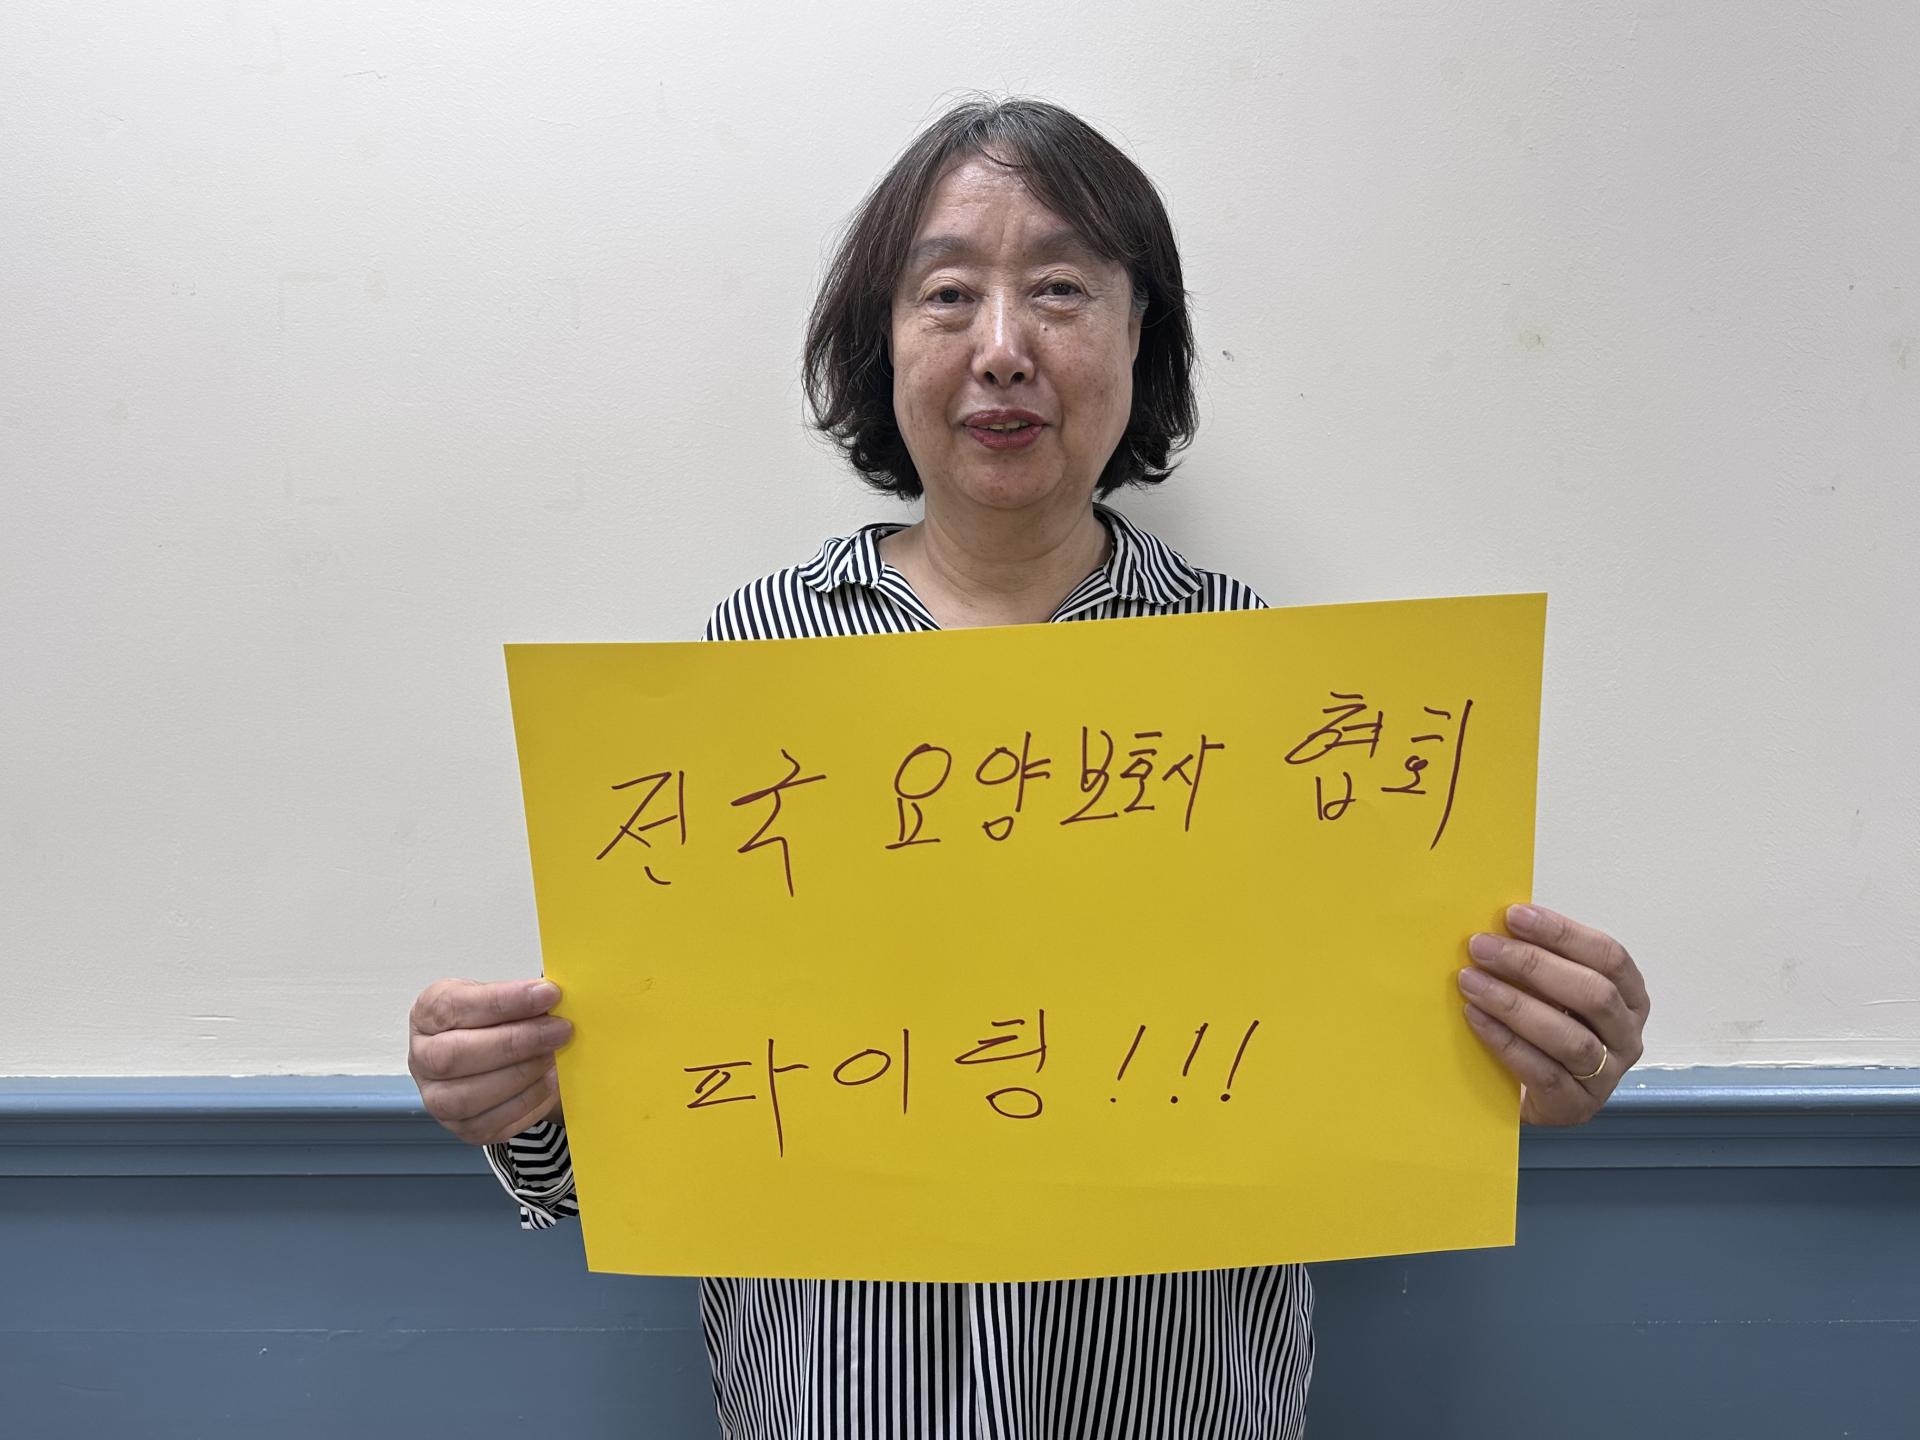 전국 요양보호사 협회
파이팅!!!